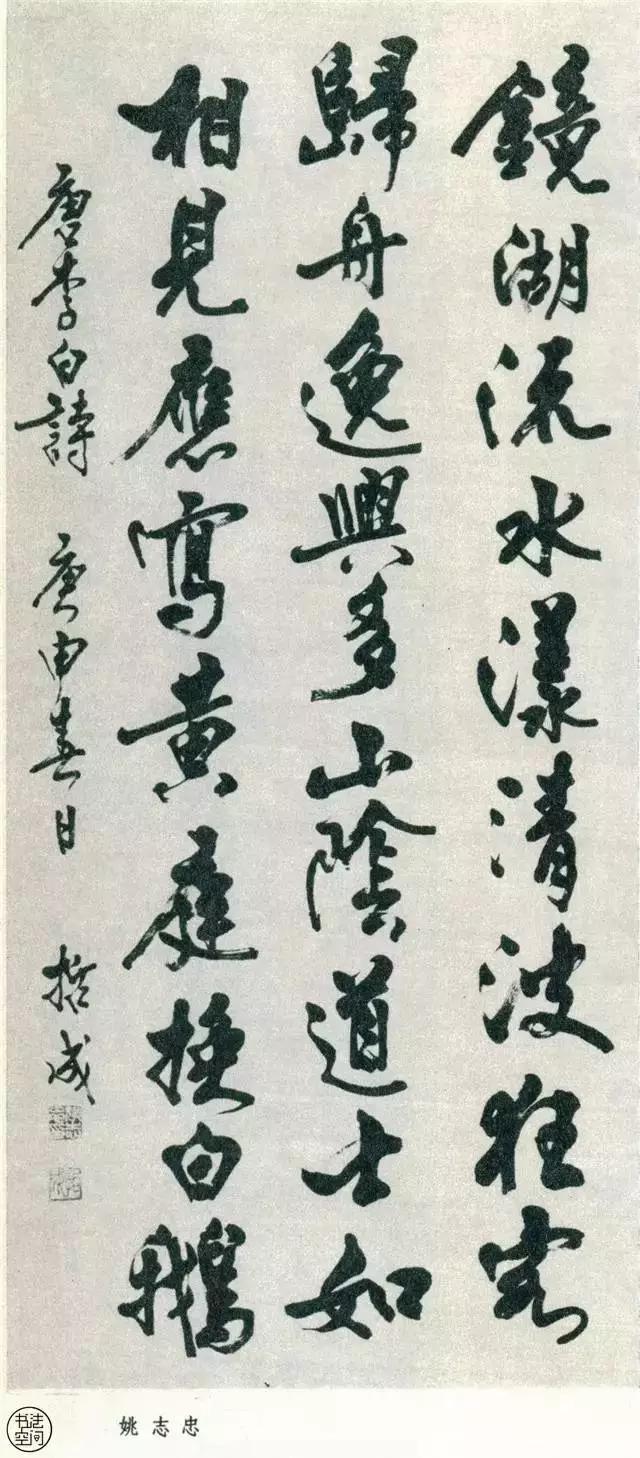 鏡湖流水漾清波狂客
歸舟逸興多山陰道士如
相見應寫黃庭換白鵝
唐李白詩 庚申春日 成
姚志忠
书法空间